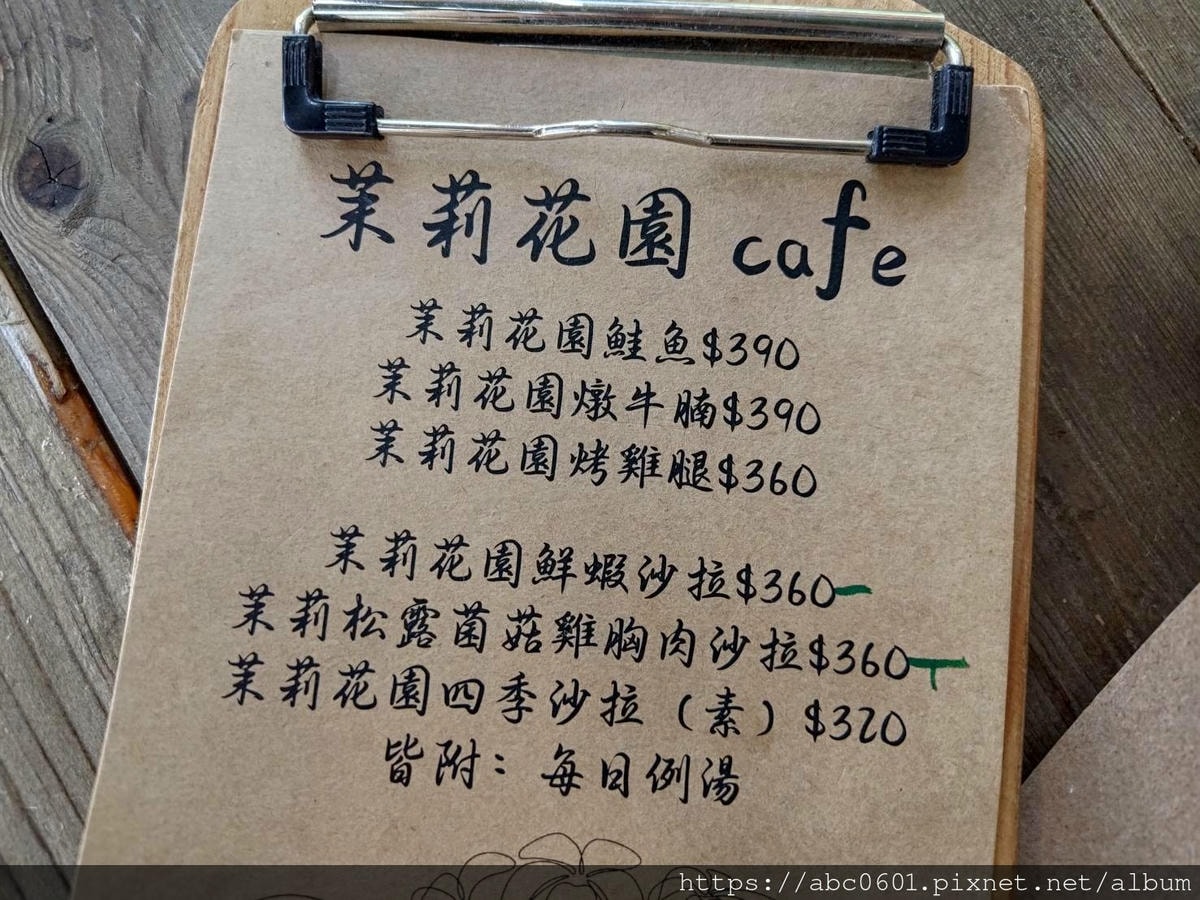 茉莉花園 cafe
茉莉花園鮭魚$390
茉莉花園燉牛腩$390
茉莉花園烤雞腿$360
茉莉花園鮮蝦沙拉$360
茉莉松露菌菇雞胸肉沙拉$360
茉莉花園四季沙拉（素）$320
皆附：每日例湯
https://abc0601.pixnet.net/album